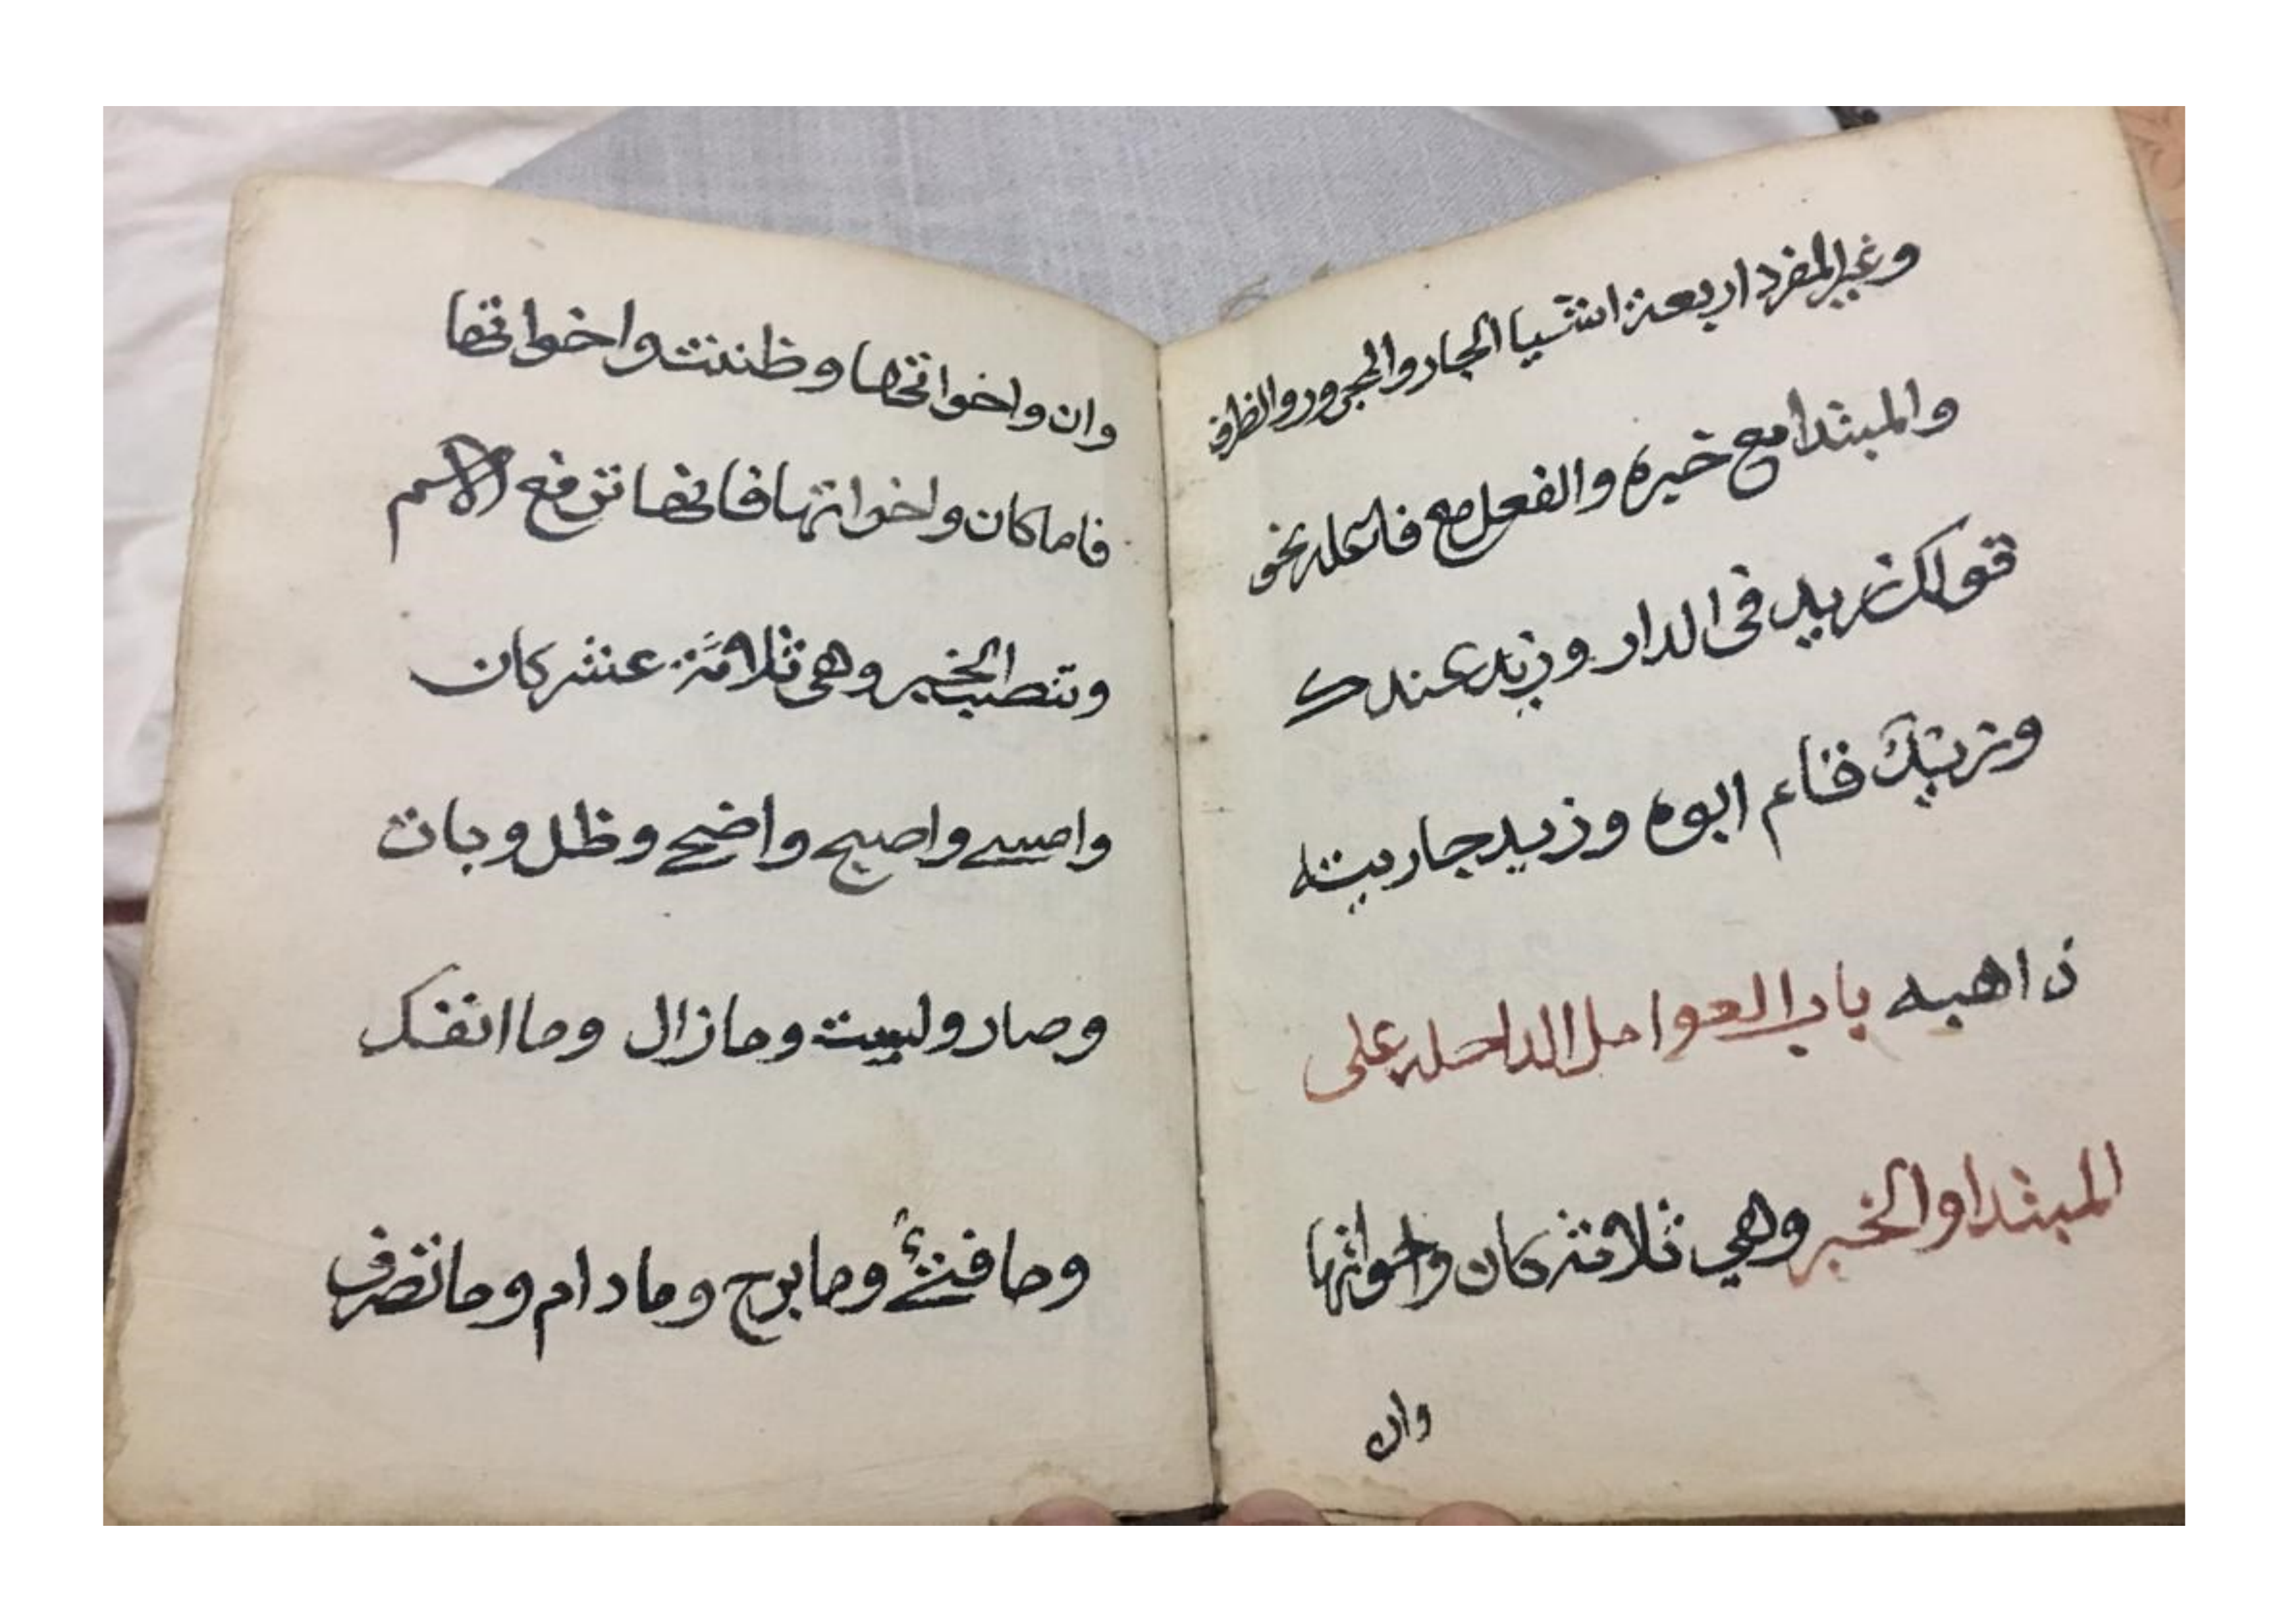 وغير المفرد اربعة اشيا الجار والمجرور والظرف
والمبتدا مع خبره والفعل مع فاعله نحو
قولك زيد في الدار وزيد عندك
وزيد قام ابوه وزيد جاريته
ذاهبه باب العوامل الداخله على
المبتدا والخبر وهي ثلاثة كان واخواتها
وان
وان واخواتها وظننت واخواتها
فاما كان واخواتها فانها ترفع الاسم
وتنصب الخبر وهي ثلاثة عشر كان
وامسى واصبح واضحى وظل وبات
وصار وليست وما زال وما انفك
وما فتئ وما برح وما دام وما تصرف